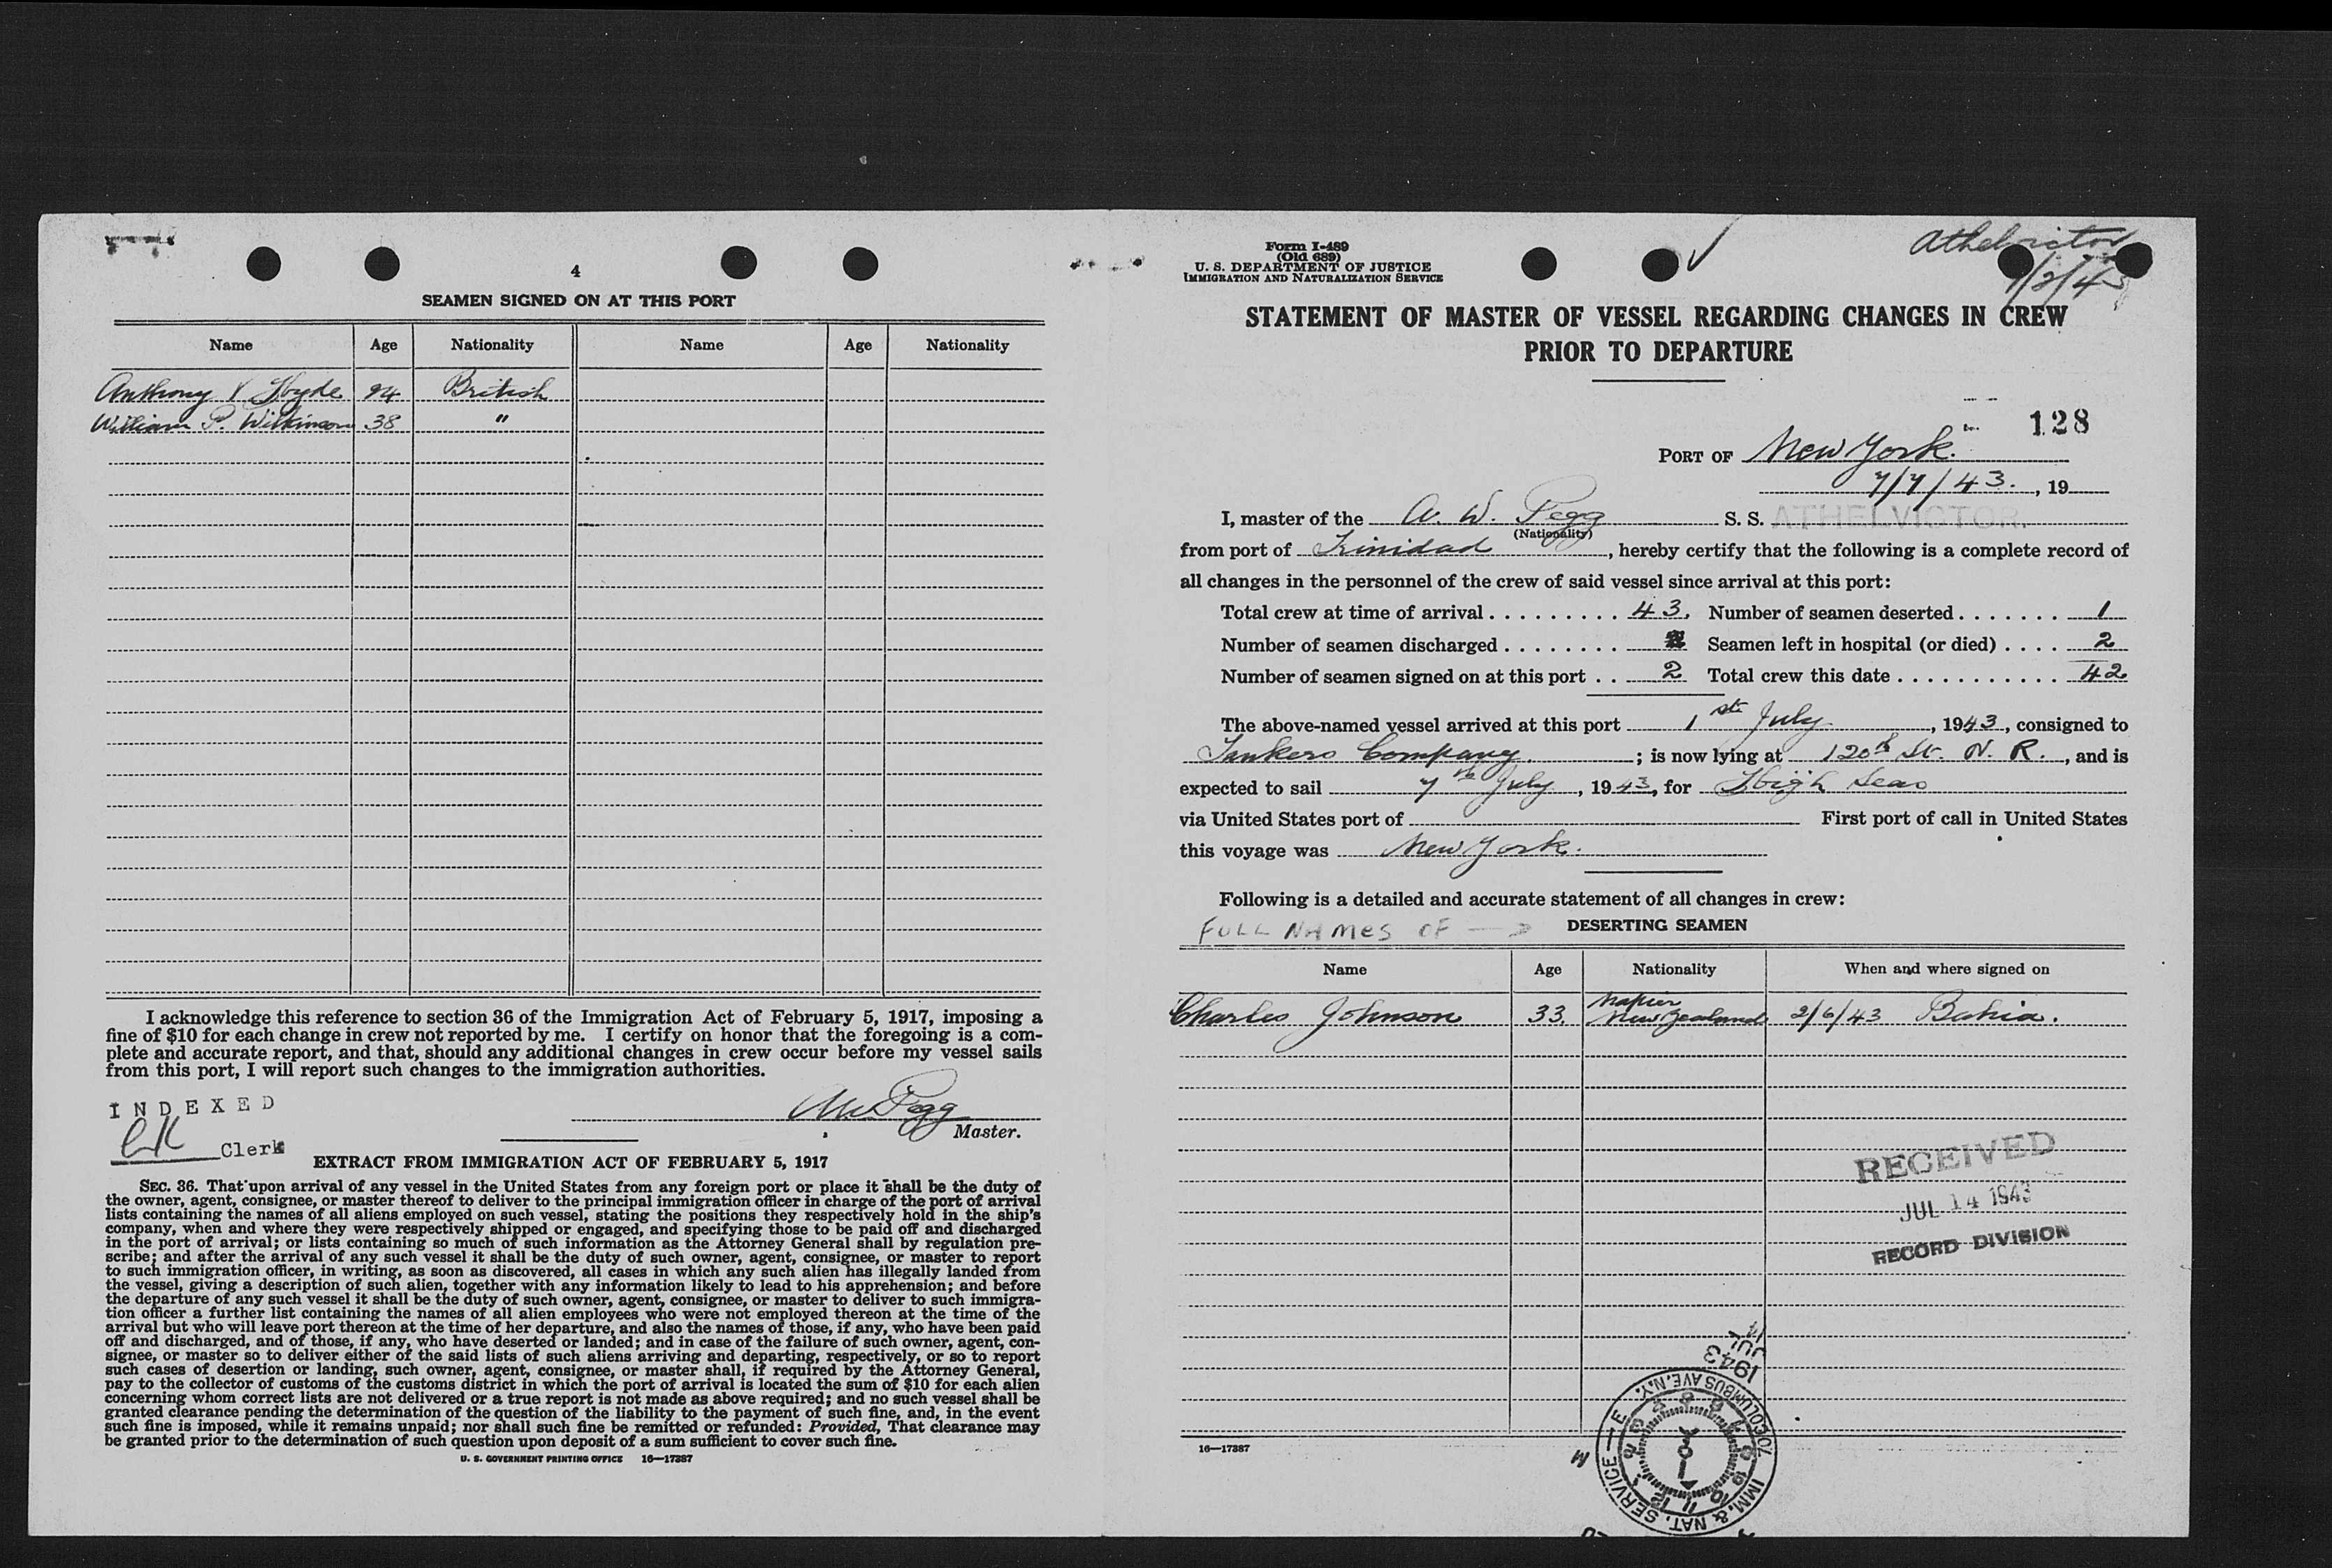 4
SEAMEN SIGNED ON AT THIS PORT
Name Age Nationality Name Age Nationality
Anthony V Hyde 24 British
William P. Wilkinson 38 "
I acknowledge this reference to section 36 of the Immigration Act of February 5, 1917, imposing a
fine of $10 for each change in crew not reported by me. I certify on honor that the foregoing is a com-
plete and accurate report, and that, should any additional changes in crew occur before my vessel sails
from this port, I will report such changes to the immigration authorities.
INDEXED
Pegg
Master.
Clerk
EXTRACT FROM IMMIGRATION ACT OF FEBRUARY 5, 1917
SEC. 36. That upon arrival of any vessel in the United States from any foreign port or place it shall be the duty of
the owner, agent, consignee, or master thereof to deliver to the principal immigration officer in charge of the port of arrival
lists containing the names of all aliens employed on such vessel, stating the positions they respectively hold in the ship's
company, when and where they were respectively shipped or engaged, and specifying those to be paid off and discharged
in the port of arrival; or lists containing so much of such information as the Attorney General shall by regulation pre-
scribe; and after the arrival of any such vessel it shall be the duty of such owner, agent, consignee, or master to report
to such immigration officer, in writing, as soon as discovered, all cases in which any such alien has illegally landed from
the vessel, giving a description of such alien, together with any information likely to lead to his apprehension; and before
the departure of any such vessel it shall be the duty of such owner, agent, consignee, or master to deliver to such immigra-
tion officer a further list containing the names of all alien employees who were not employed thereon at the time of the
arrival but who will leave port thereon at the time of her departure, and also the names of those, if any, who have been paid
off and discharged, and of those, if any, who have deserted or landed; and in case of the failure of such owner, agent, con-
signee, or master so to deliver either of the said lists of such aliens arriving and departing, respectively, or so to report
such cases of desertion or landing, such owner, agent, consignee, or master shall, if required by the Attorney General,
pay to the collector of customs of the customs district in which the port of arrival is located the sum of $10 for each alien
concerning whom correct lists are not delivered or a true report is not made as above required; and no such vessel shall be
granted clearance pending the determination of the question of the liability to the payment of such fine, and, in the event
such fine is imposed, while it remains unpaid; nor shall such fine be remitted or refunded: Provided, That clearance may
be granted prior to the determination of such question upon deposit of a sum sufficient to cover such fine.
U. S. GOVERNMENT PRINTING OFFICE 16—17387
Form I-489
(Old 689)
U. S. DEPARTMENT OF JUSTICE
IMMIGRATION AND NATURALIZATION SERVICE
Athelvictor
STATEMENT OF MASTER OF VESSEL REGARDING CHANGES IN CREW
PRIOR TO DEPARTURE
128
PORT OF New York.
7/7/43. , 19
I, master of the A. W. Pegg S. S. ATHELVICTOR.
(Nationality)
from port of Trinidad , hereby certify that the following is a complete record of
all changes in the personnel of the crew of said vessel since arrival at this port:
Total crew at time of arrival . . . . . . . . . 43. Number of seamen deserted . . . . . . . 1
Number of seamen discharged . . . . . . . . Seamen left in hospital (or died) . . . . 2
Number of seamen signed on at this port . . 2 Total crew this date . . . . . . . . . . . . 42
The above-named vessel arrived at this port 1st July , 1943, consigned to
Tankers Company. ; is now lying at 120th St. N. R. , and is
expected to sail 7th July , 1943, for High Seas
via United States port of First port of call in United States
this voyage was New York.
Following is a detailed and accurate statement of all changes in crew:
FULL NAMES OF —> DESERTING SEAMEN
Name Age Nationality When and where signed on
Napier
Charles Johnson 33. New Zealand 2/6/43 Bahia.
RECEIVED
JUL 14 1943
RECORD DIVISION
JUL 14
1943
70 COLUMBUS AVE. N.Y.
IMM. & NAT. SERVICE
16—17387
M